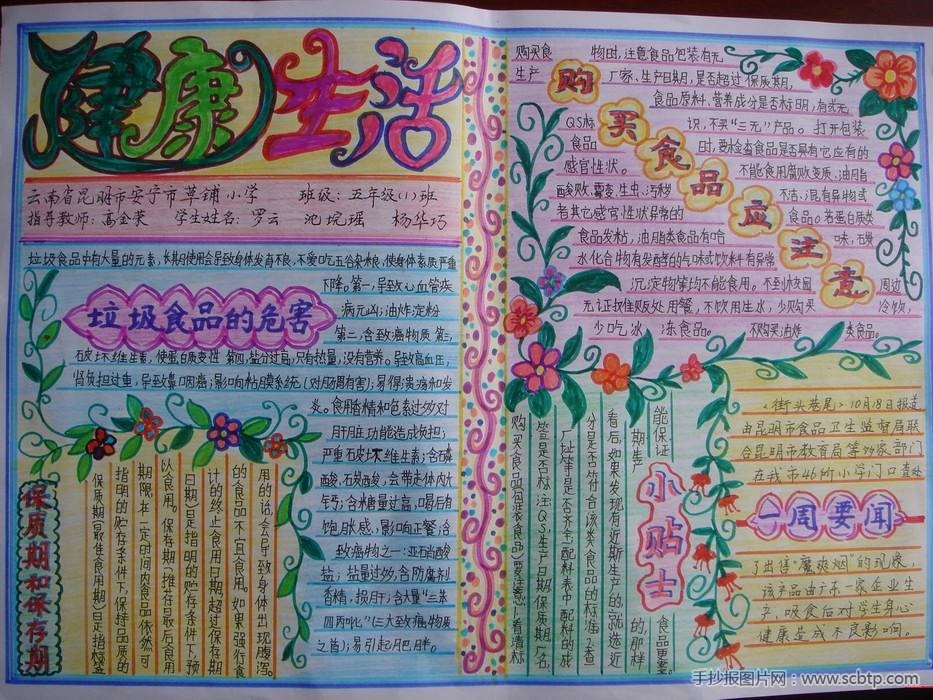 健康生活
云南省昆明市安宁市草铺小学 班级:五年级(1)班
指导教师:高金荣 学生姓名:罗云 沈琬瑶 杨华巧
垃圾食品中有大量的元素,长期使用会导致身体发育不良,不爱吃五谷杂粮,使身体素质严重
下降。第一,导致心血管疾
病元凶;油炸淀粉
第二,含致癌物质 第三,
破坏维生素,使蛋白质变性 第四,盐分过高,只有热量,没有营养。导致高血压,
肾负担过重,导致鼻咽癌;影响粘膜系统(对肠胃有害);易得溃疡和发
炎。食用香精和色素过多对
肝脏功能造成负担;
严重破坏维生素;含磷
酸、碳酸,会带走体内大
钙;含糖量过高,喝后有
饱胀感,影响正餐;含
致癌物之一:亚硝酸
盐;盐量过多,含防腐剂
香精,损肝;含大量“三苯
四丙吡”(三大致癌物质
之首);易引起肥胖。
垃圾食品的危害
保质期和保存期
用的话,会导致身体出现腹泻。
的食品不宜食用。如果强行食
计的终止食用日期,超过保存期
日期)是指明的贮存条件下,预
以食用。保存期(推荐最后食用
期限,在一定时间内食品依然可
指明的贮存条件下,保持品质的
保质期(最佳食用期)日是指标签
购买食 物时,注意食品包装有无
生产 厂家、生产日期,是否超过保质期,
食品原料、营养成分是否标明,有或无
QS标 识,不买“三无”产品。打开包装
食品 时,要检查食品是否具有它应有的
感官性状。 不能食用腐败变质、油脂
酸败、霉变、生虫、污秽 不洁、混有异物或
者其它感官性状异常的 食品。若蛋白质类
食品发粘,油脂类食品有哈 味,碳
水化合物有发酵的气味或饮料有异常
沉淀物等均不能食用。不到校园 周边
无证摊贩处用餐,不饮用生水,少购买 冷饮,
少吃冰 冻食品。 不购买油炸 类食品。
购买食品应注意
小贴士
能保证 食品更
期 生产 的,那样
看后,如果发现有近期生产的,就选近
分是否符合该类食品的标准。查
厂址等是否齐全;配料表中,配料的成
皆是否标注QS,生产日期,保质期,厂名,
《街头巷尾》10月18日报道
由昆明市食品卫生监督局联
合昆明市教育局等
在我市46所小学门口查处
一周要闻
了出售“魔爽烟”的现象,
该产品由广东一家企业生
产,吸食后对学生身心
健康造成不良影响。
手抄报图片网:www.scbtp.com